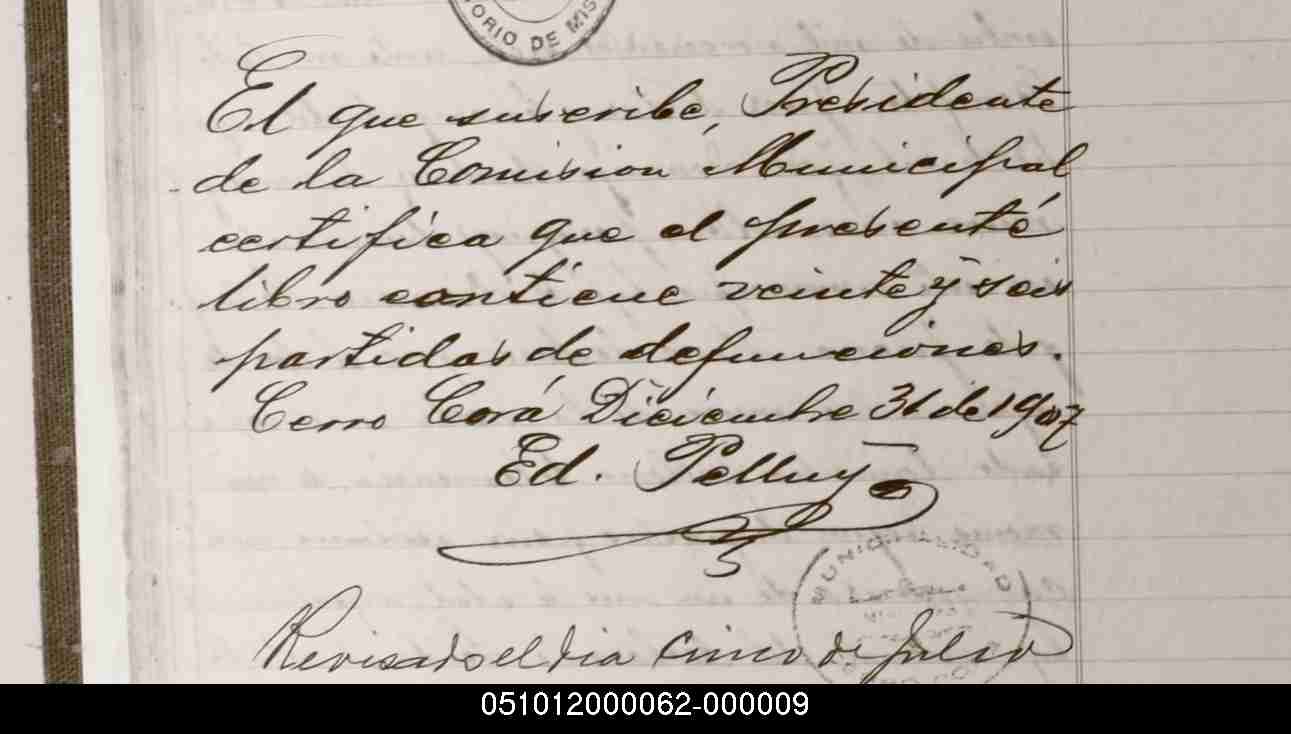 ORIO DE MIS
El que suscribe, Presidente
de la Comision Municipal
certifica que el presente
libro contiene veinte y seis
partidas de defunciones.
Cerro Corá Diciembre 31 de 1907
Ed. Pelluy
MUNICIPALIDAD
Revisado el dia cinco de Julio
051012000062-000009